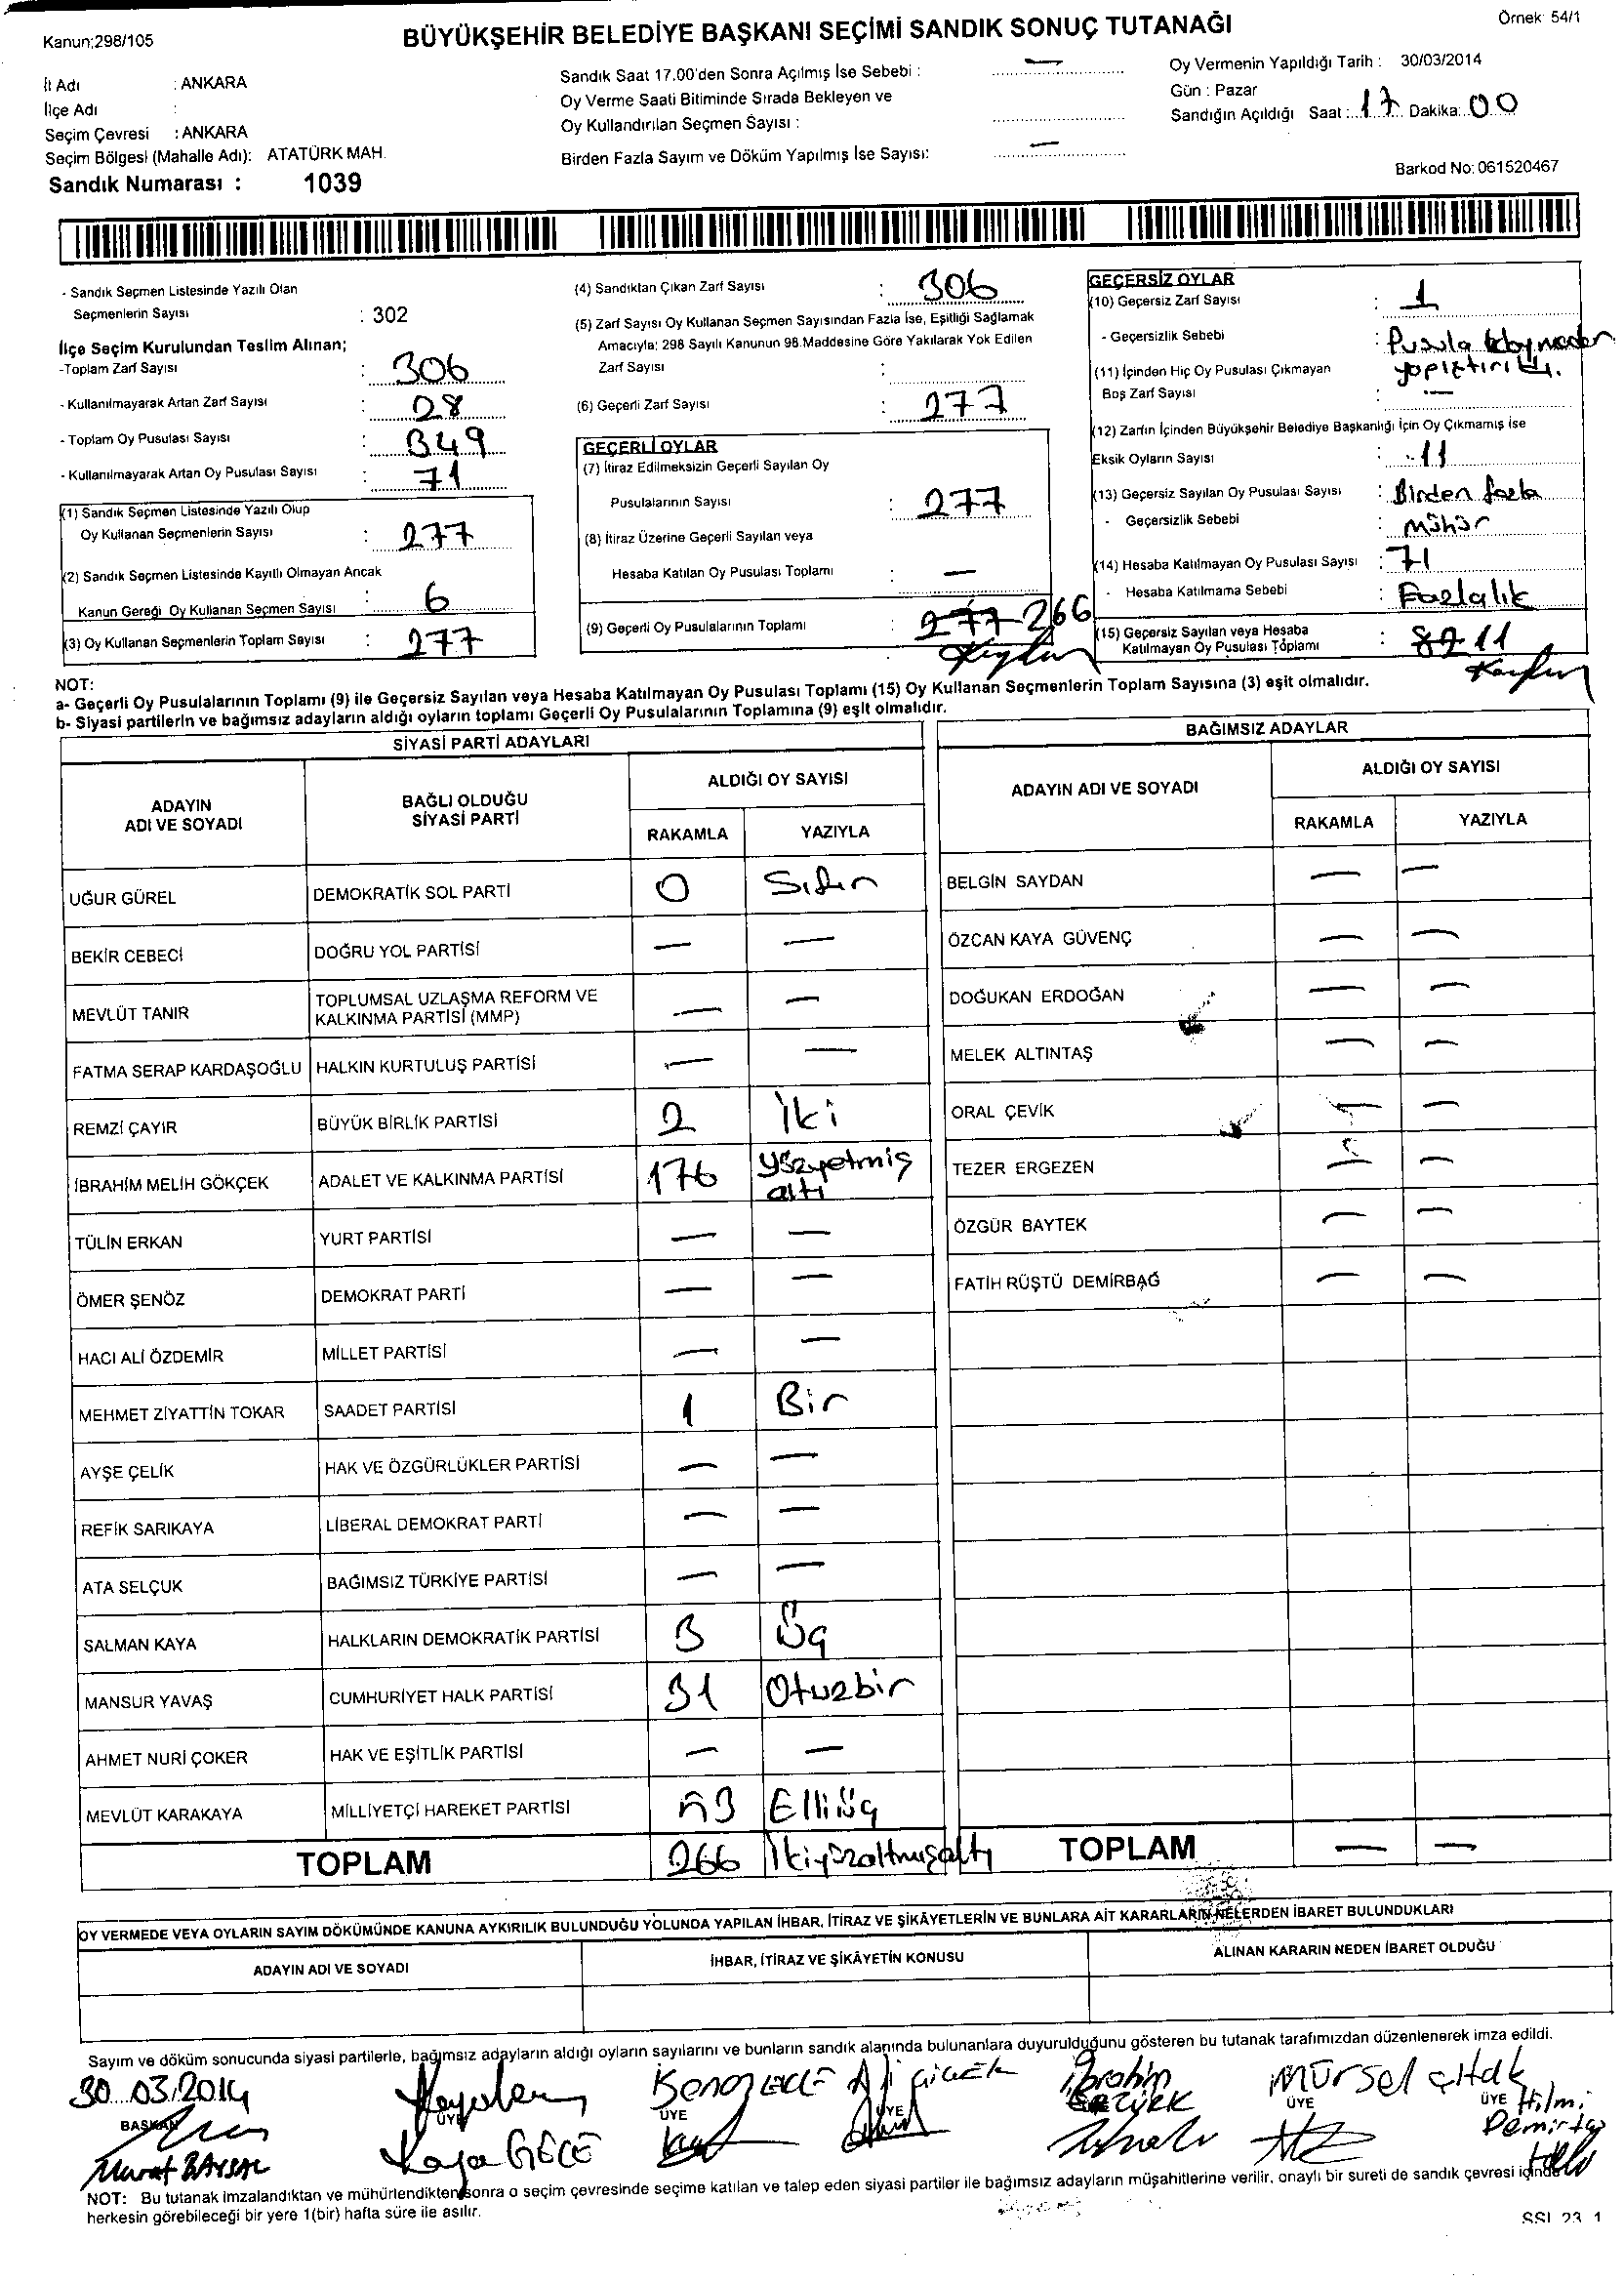 Kanun;298/105
BÜYÜKŞEHİR BELEDİYE BAŞKANI SEÇİMİ SANDIK SONUÇ TUTANAĞI
Örnek: 54/1
İl Adı : ANKARA
İlçe Adı :
Seçim Çevresi : ANKARA
Seçim Bölgesi (Mahalle Adı): ATATÜRK MAH.
Sandık Numarası : 1039
Sandık Saat 17.00'den Sonra Açılmış İse Sebebi : —
Oy Verme Saati Bitiminde Sırada Bekleyen ve
Oy Kullandırılan Seçmen Sayısı :
Birden Fazla Sayım ve Döküm Yapılmış İse Sayısı: —
Oy Vermenin Yapıldığı Tarih : 30/03/2014
Gün : Pazar
Sandığın Açıldığı Saat : 17 Dakika: 00
Barkod No: 061520467
- Sandık Seçmen Listesinde Yazılı Olan
Seçmenlerin Sayısı : 302
İlçe Seçim Kurulundan Teslim Alınan;
-Toplam Zarf Sayısı : 306
- Kullanılmayarak Artan Zarf Sayısı : 28
- Toplam Oy Pusulası Sayısı : 349
- Kullanılmayarak Artan Oy Pusulası Sayısı : 71
(1) Sandık Seçmen Listesinde Yazılı Olup
Oy Kullanan Seçmenlerin Sayısı : 277
(2) Sandık Seçmen Listesinde Kayıtlı Olmayan Ancak
Kanun Gereği Oy Kullanan Seçmen Sayısı : 6
(3) Oy Kullanan Seçmenlerin Toplam Sayısı : 277
(4) Sandıktan Çıkan Zarf Sayısı : 306
(5) Zarf Sayısı Oy Kullanan Seçmen Sayısından Fazla İse, Eşitliği Sağlamak
Amacıyla; 298 Sayılı Kanunun 98.Maddesine Göre Yakılarak Yok Edilen
Zarf Sayısı :
(6) Geçerli Zarf Sayısı : 277
GEÇERLİ OYLAR
(7) İtiraz Edilmeksizin Geçerli Sayılan Oy
Pusulalarının Sayısı : 277
(8) İtiraz Üzerine Geçerli Sayılan veya
Hesaba Katılan Oy Pusulası Toplamı : —
(9) Geçerli Oy Pusulalarının Toplamı : 277 266
GEÇERSİZ OYLAR
(10) Geçersiz Zarf Sayısı : 1
- Geçersizlik Sebebi : Pusula koymadan
yapıştırıldı.
(11) İçinden Hiç Oy Pusulası Çıkmayan
Boş Zarf Sayısı : —
(12) Zarfın İçinden Büyükşehir Belediye Başkanlığı İçin Oy Çıkmamış ise
Eksik Oyların Sayısı : 11
(13) Geçersiz Sayılan Oy Pusulası Sayısı : Birden fazla
- Geçersizlik Sebebi : Mühür
(14) Hesaba Katılmayan Oy Pusulası Sayısı : 71
- Hesaba Katılmama Sebebi : Fazlalık
(15) Geçersiz Sayılan veya Hesaba
Katılmayan Oy Pusulası Toplamı : 82 11
NOT:
a- Geçerli Oy Pusulalarının Toplamı (9) ile Geçersiz Sayılan veya Hesaba Katılmayan Oy Pusulası Toplamı (15) Oy Kullanan Seçmenlerin Toplam Sayısına (3) eşit olmalıdır.
b- Siyasi partilerin ve bağımsız adayların aldığı oyların toplamı Geçerli Oy Pusulalarının Toplamına (9) eşit olmalıdır.
SİYASİ PARTİ ADAYLARI
ADAYIN ADI VE SOYADI
BAĞLI OLDUĞU SİYASİ PARTİ
ALDIĞI OY SAYISI
RAKAMLA YAZIYLA
UĞUR GÜREL DEMOKRATİK SOL PARTİ 0 Sıfır
BEKİR CEBECİ DOĞRU YOL PARTİSİ — —
MEVLÜT TANIR TOPLUMSAL UZLAŞMA REFORM VE KALKINMA PARTİSİ (MMP) — —
FATMA SERAP KARDAŞOĞLU HALKIN KURTULUŞ PARTİSİ — —
REMZİ ÇAYIR BÜYÜK BİRLİK PARTİSİ 2 İki
İBRAHİM MELİH GÖKÇEK ADALET VE KALKINMA PARTİSİ 176 Yüzyetmiş altı
TÜLİN ERKAN YURT PARTİSİ — —
ÖMER ŞENÖZ DEMOKRAT PARTİ — —
HACI ALİ ÖZDEMİR MİLLET PARTİSİ — —
MEHMET ZİYATTİN TOKAR SAADET PARTİSİ 1 Bir
AYŞE ÇELİK HAK VE ÖZGÜRLÜKLER PARTİSİ — —
REFİK SARIKAYA LİBERAL DEMOKRAT PARTİ — —
ATA SELÇUK BAĞIMSIZ TÜRKİYE PARTİSİ — —
SALMAN KAYA HALKLARIN DEMOKRATİK PARTİSİ 3 Üç
MANSUR YAVAŞ CUMHURİYET HALK PARTİSİ 31 Otuzbir
AHMET NURİ ÇOKER HAK VE EŞİTLİK PARTİSİ — —
MEVLÜT KARAKAYA MİLLİYETÇİ HAREKET PARTİSİ 53 Elliüç
TOPLAM 266 İkiyüzaltmışaltı
BAĞIMSIZ ADAYLAR
ADAYIN ADI VE SOYADI
ALDIĞI OY SAYISI
RAKAMLA YAZIYLA
BELGİN SAYDAN — —
ÖZCAN KAYA GÜVENÇ — —
DOĞUKAN ERDOĞAN — —
MELEK ALTINTAŞ — —
ORAL ÇEVİK — —
TEZER ERGEZEN — —
ÖZGÜR BAYTEK — —
FATİH RÜŞTÜ DEMİRBAĞ — —
TOPLAM — —
OY VERMEDE VEYA OYLARIN SAYIM DÖKÜMÜNDE KANUNA AYKIRILIK BULUNDUĞU YOLUNDA YAPILAN İHBAR, İTİRAZ VE ŞİKÂYETLERİN VE BUNLARA AİT KARARLARIN NELERDEN İBARET BULUNDUKLARI
ADAYIN ADI VE SOYADI
İHBAR, İTİRAZ VE ŞİKÂYETİN KONUSU
ALINAN KARARIN NEDEN İBARET OLDUĞU
Sayım ve döküm sonucunda siyasi partilerle, bağımsız adayların aldığı oyların sayılarını ve bunların sandık alanında bulunanlara duyurulduğunu gösteren bu tutanak tarafımızdan düzenlenerek imza edildi.
30.03.2014
Ali ÇİÇEK
İbrahim
Mürsel
BAŞKAN ÜYE ÜYE ÜYE ÜYE ÜYE
Hilmi
Demirtaş
Murat BAYSAL
Kaya GECE
NOT: Bu tutanak imzalandıktan ve mühürlendikten sonra o seçim çevresinde seçime katılan ve talep eden siyasi partiler ile bağımsız adayların müşahitlerine verilir, onaylı bir sureti de sandık çevresi içinde
herkesin görebileceği bir yere 1(bir) hafta süre ile asılır.